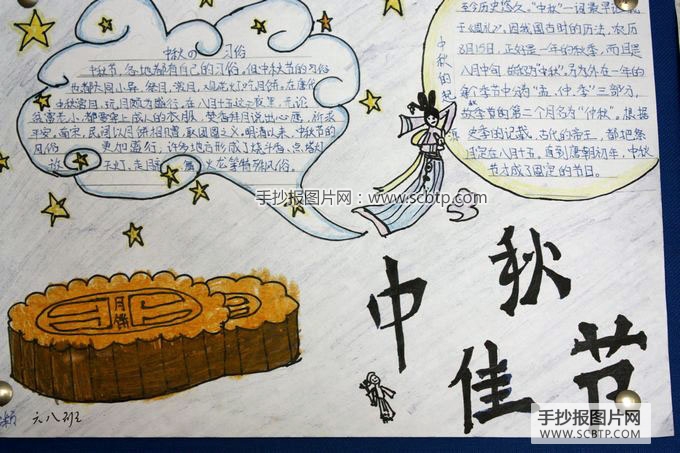 中秋の习俗
中秋节,各地都有自己的习俗,但中秋节的习俗
也都大同小异。祭月、赏月、观花灯、吃月饼,在唐代,
中秋赏月、玩月颇为盛行,在八月十五这之夜里,无论
贫富老小,都要穿上成人的衣服,焚香拜月说出心愿,祈求
平安。南宋,民间以月饼相赠,取团圆之义。明清以来,中秋节的
风俗更加盛行,许多地方形成了烧斗香、点塔灯
放天灯、走月亮、舞火龙等特殊风俗。
中秋的起源
至今历史悠久。“中秋”一词最早记载
于《周礼》,因我国古时的历法,农历
8月15日,正好是一年的秋季,而且是
八月中旬,故称为“中秋”。另为外在一年的
每个季节中分为“孟、仲、季”三部分,
故季节的第二个月名为“仲秋”。根据
史季的记载,古代的帝王,都把祭
月定在八月十五。直到唐朝初年,中秋
节才成了固定的节日。
手抄报图片网:www.scbtp.com
月饼
中秋
佳节
六八班
手抄报图片网
WWW.SCBTP.COM